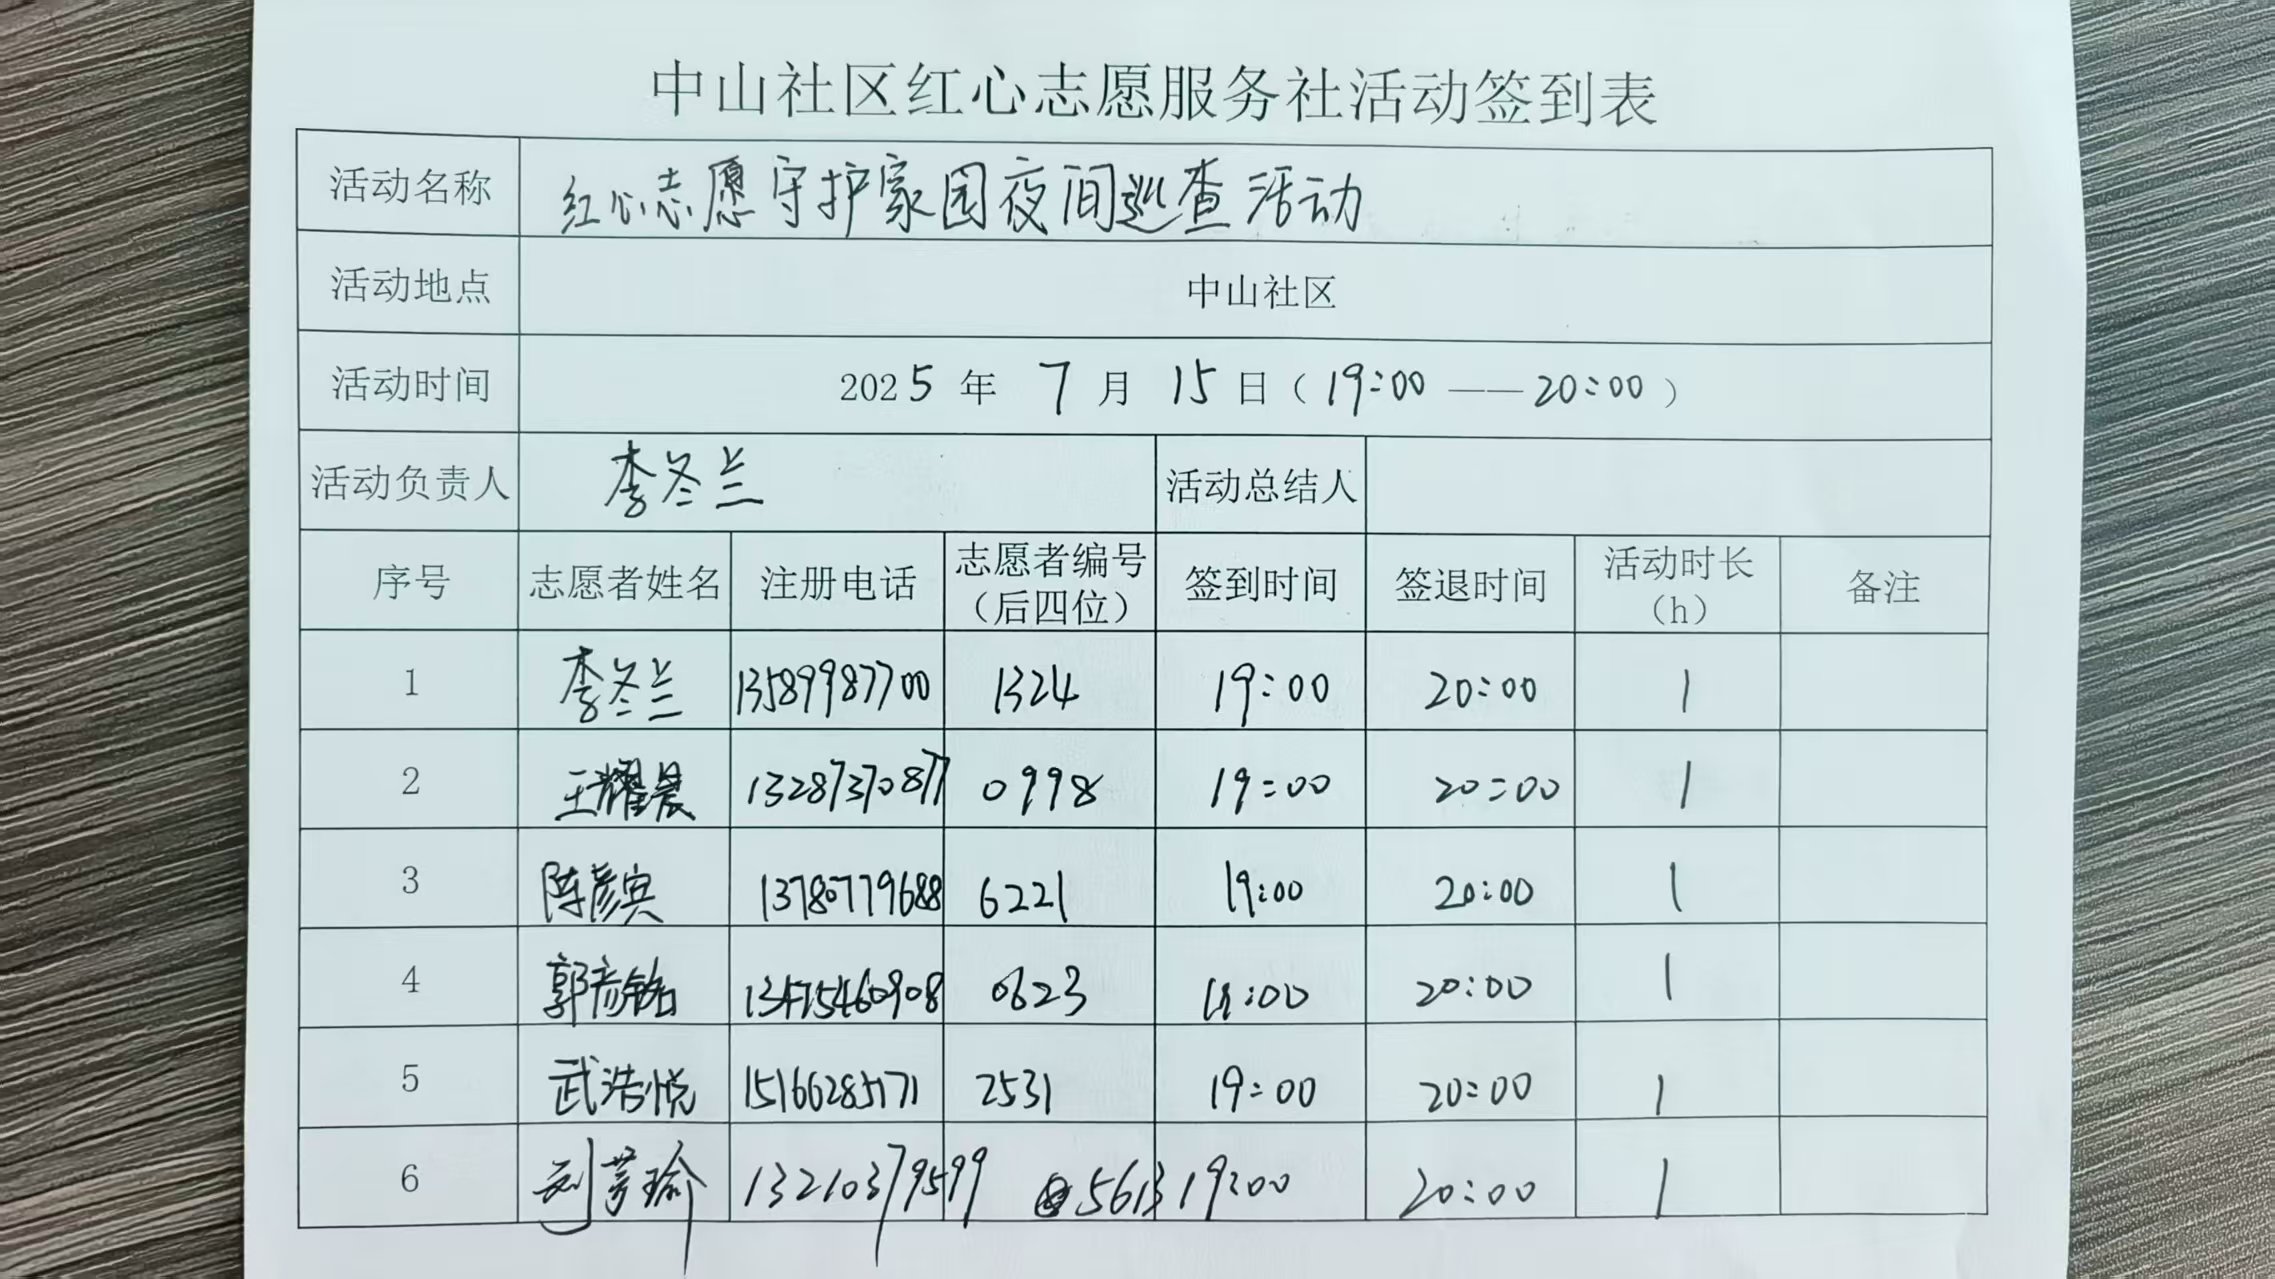 中山社区红心志愿服务社活动签到表
活动名称 红心志愿守护家园夜间巡查活动
活动地点 中山社区
活动时间 2025 年 7 月 15 日（19:00 —— 20:00）
活动负责人 李冬兰 活动总结人
序号 志愿者姓名 注册电话 志愿者编号（后四位） 签到时间 签退时间 活动时长（h） 备注
1 李冬兰 13589987700 1324 19:00 20:00 1
2 王耀晨 13287370877 0998 19:00 20:00 1
3 陈彦宾 13780779688 6221 19:00 20:00 1
4 郭彦铭 13475460908 0623 19:00 20:00 1
5 武浩悦 15166285171 2531 19:00 20:00 1
6 刘梦瑜 13210379599 5613 19:00 20:00 1